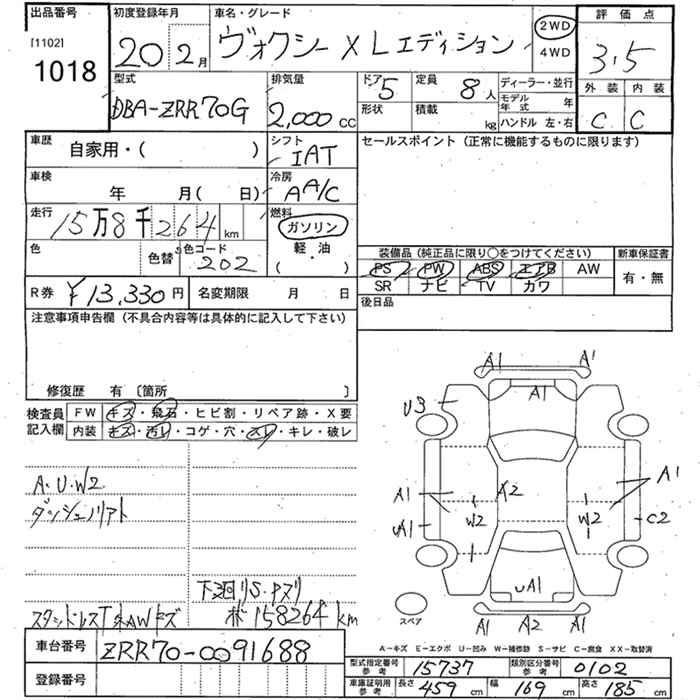 出品番号 初度登録年月 車名・グレード 評価点
[1102]
1018 20 2月 ヴォクシー X Lエディション 2WD 4WD 3.5
外装 内装
C C
型式 排気量 ドア 定員 ディーラー・並行
DBA-ZRR70G 2,000cc 5 8人 モデル年式 年
形状 積載 kg ハンドル 左・右
車歴 シフト セールスポイント (正常に機能するものに限ります)
自家用・( ) IAT
車検 冷房
年 月( 日) AA/C
走行 燃料
15万8千264km ガソリン
色 色替 色コード 軽・油
202 ( ・ )
装備品 (純正品に限り○をつけてください) 新車保証書
PS PW ABS エアB AW 有・無
SR ナビ TV カワ
R券 ¥13,330円 名変期限 月 日 後日品
注意事項申告欄 (不具合内容等は具体的に記入して下さい)
修復歴 有 〔箇所 〕
検査員 FW キズ・飛石・ヒビ割・リペア跡・X要
記入欄 内装 キズ・汚レ・コゲ・穴・スレ・キレ・破レ
A1 A1
A1
U3
A・U・W2
A1 A2 A1
W2 W2
UA1 C2
下廻りS・Pヌリ
UA1
158264km
スペア
A1 A2 A1
A-キズ E-エクボ U-凹み W-補修跡 S-サビ C-腐食 XX-取替済
車台番号 ZRR70-0091688
登録番号
型式指定番号 参考 15737 類別区分番号 参考 0102
車庫証明用 参考 長さ 459cm 幅 169cm 高さ 185cm